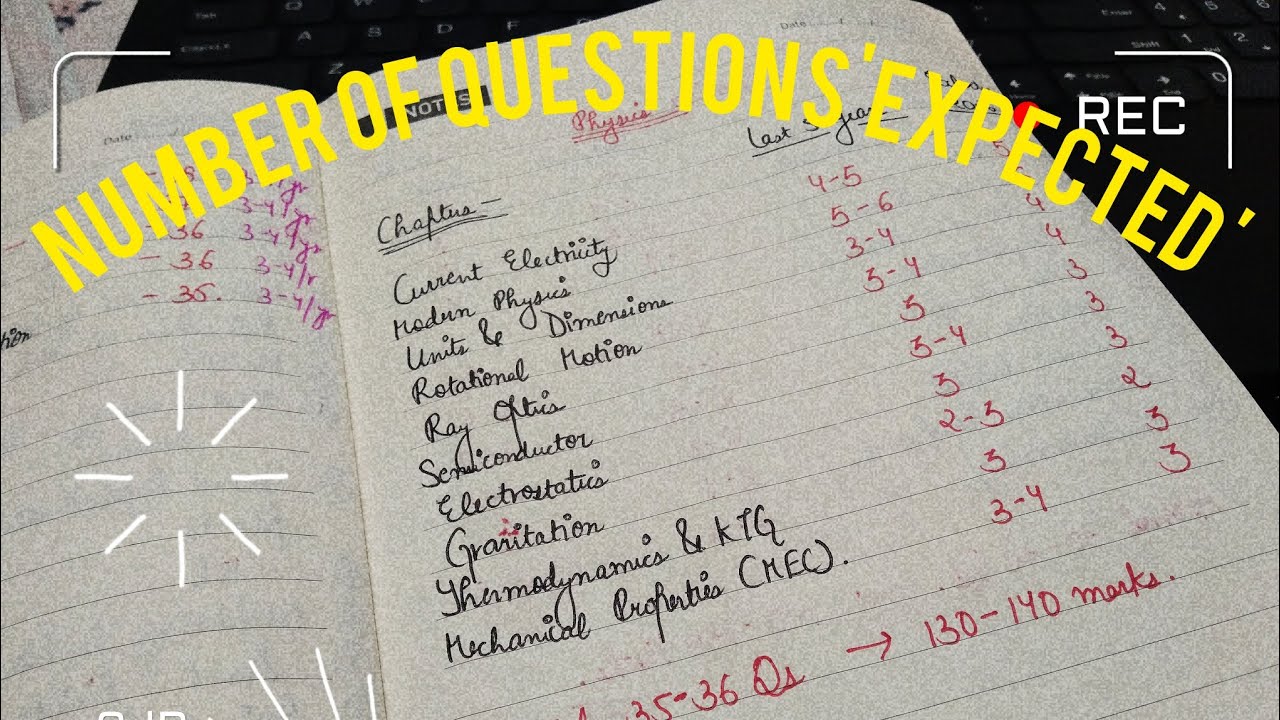 NUMBER OF QUESTIONS 'EXPECTED'
REC
NOTES
Date
Date
Physics
Last 3 year
Chapters -
Current Electricity 4-5 5
Modern Physics 5-6
Units & Dimensions 3-4 4
Rotational Motion 3-4 4
Ray Optics 3 3
Semiconductor 3-4 3
Electrostatics 3 3
Gravitation 2-3 2
Thermodynamics & KTG 3 3
Mechanical Properties (MEC). 3-4 3
35-36 Qs → 130-140 marks.
- 36 3-4/yr
- 36 3-4/yr
- 35. 3-4/yr